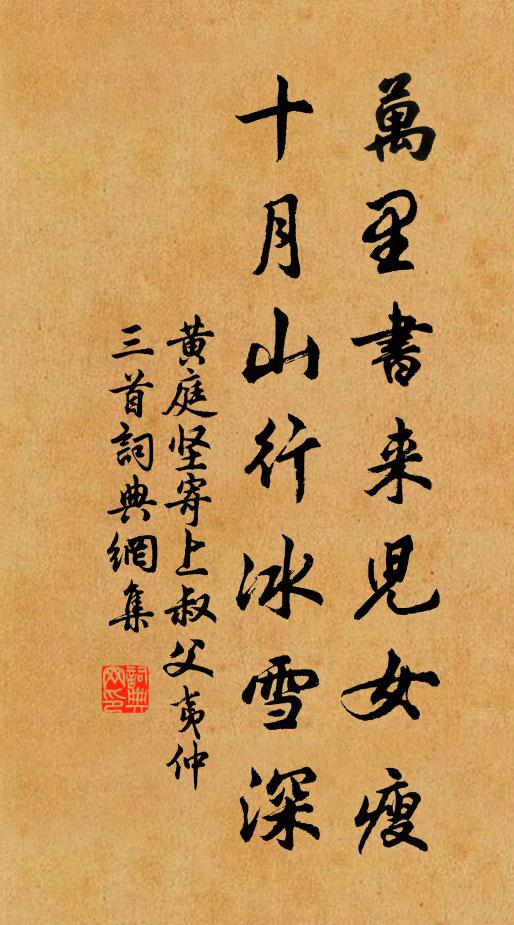 萬里書来兒女瘦
十月山行冰雪深
黄庭坚寄上叔父夷仲
三首詞典網集
詞典
网印